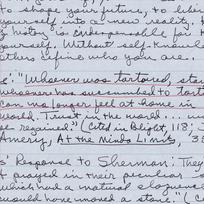 to shape your future, to
yourself into a new reality.
history is indispensable for
yourself. Without self-knowl
others define who you are.
: "Whoever was tortured, stay
whoever has succumbed to tort
can no longer feel at home in
world. Trust in the world...
be regained." (Cited in Blight, 118;
Amery, At the Minds Limits, 3
s' Response to Sherman: They
prayed in their peculiar
which had a natural eloquence
would have moved a stone." (